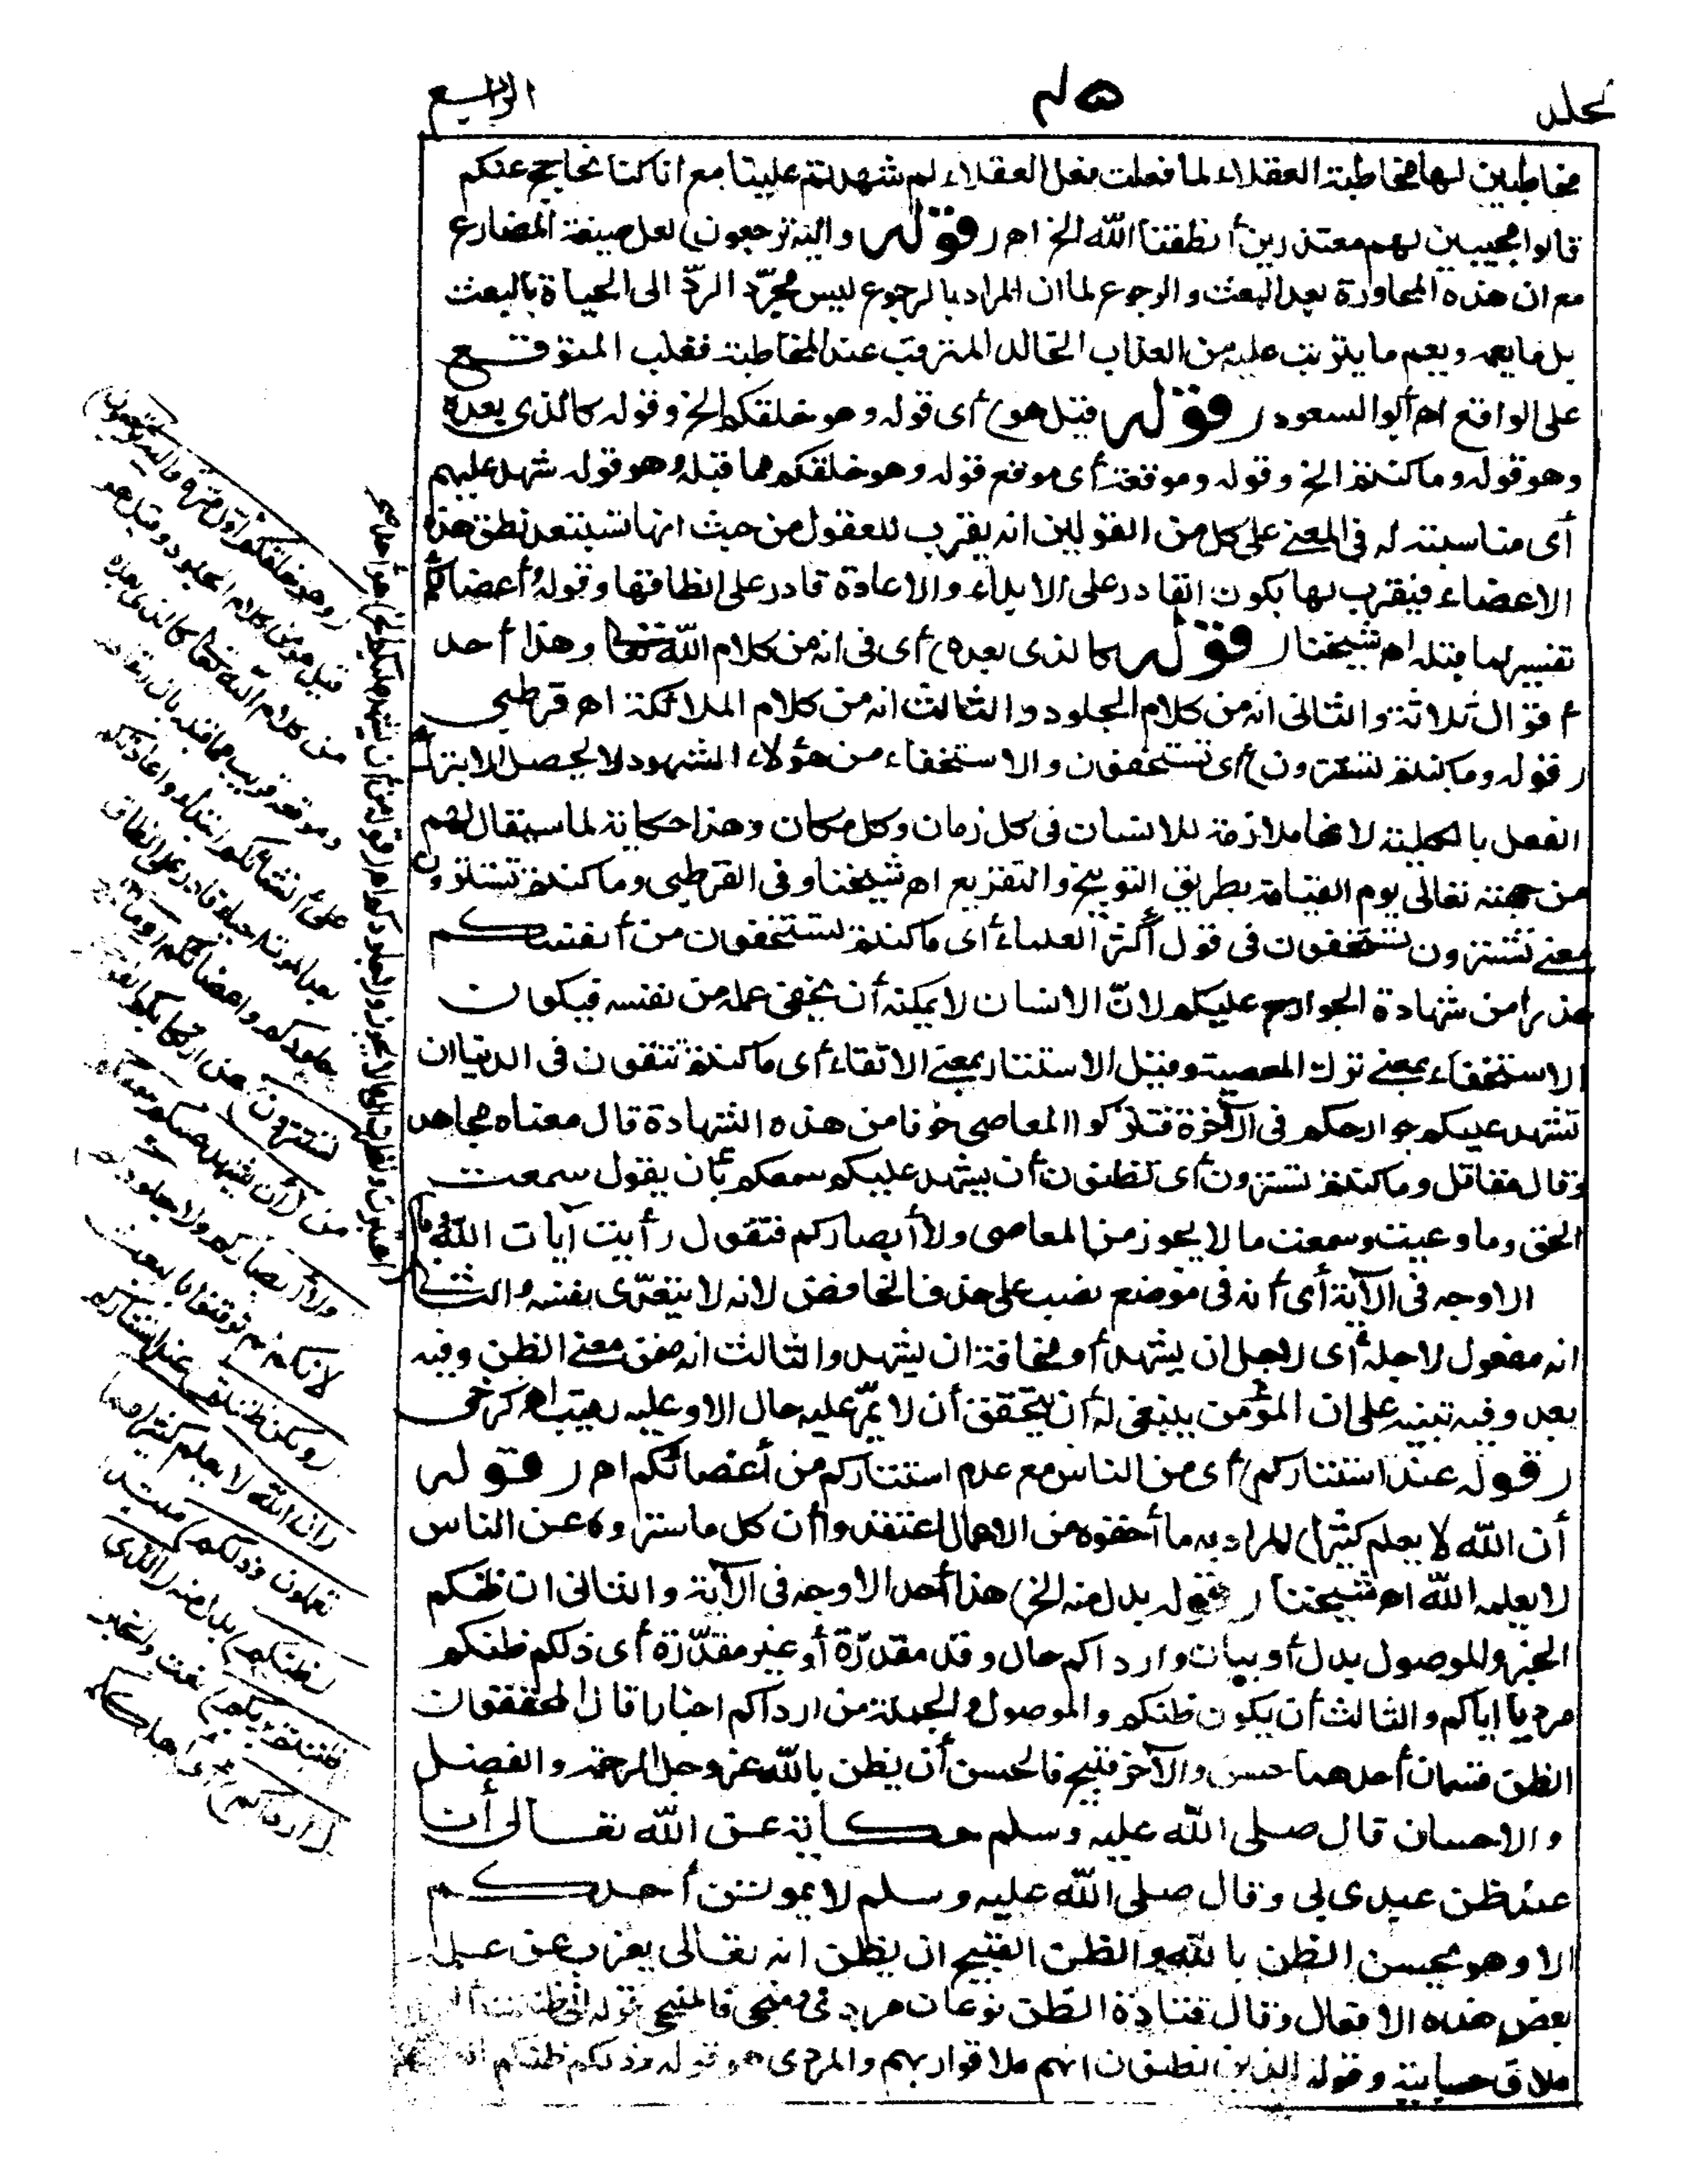 لجلد ٤٥ الرابع
مخاطبين لها مخاطبة العقلاء لما فعلت فعل العقلاء لم شهدتم علينا مع انا كنا نحاجج عنكم
قالوا مجيبين لهم معتذرين أنطقنا الله الخ اه (قوله واليه ترجعون) لعل صيغة المضارع
مع ان هذه المحاورة بعد البعث والرجوع لما ان المراد بالرجوع ليس مجرّد الردّ الى الحياة بالبعث
بل ما يعمه ويعم ما يترتب عليه من العذاب الخالد المترقب عند المخاطبة فغلب المتوقع
على الواقع اه أبو السعود (قوله قيل هو) أى قوله وهو خلقكم الخ وقوله كالذى بعده
وهو قوله وما كنتم الخ وقوله وموقعه أى موقع قوله وهو خلقكم مما قبله وهو قوله شهد عليهم
أى مناسبته له فى المعنى على كل من القولين انه يقرب للعقول من حيث انها تستبعد نطق هذه
الاعضاء فيقرب لها بكون القادر على الابداء والاعادة قادر على انطاقها وقوله وأعضائكم
تفسير لما قبله اه شيخنا (قوله كالذى بعده) أى فى انه من كلام الله تعالى وهذا أحد
أقوال ثلاثة والثانى انه من كلام الجلود والثالث انه من كلام الملائكة اه قرطبى
(قوله وما كنتم تستترون) أى تستخفون والاستخفاء من هؤلاء الشهود لا يحصل الا بترك
الفعل بالكلية لانها ملازمة للانسان فى كل زمان وكل مكان وهذا حكاية لما سيقال لهم
من جهته تعالى يوم القيامة بطريق التوبيخ والتقريع اه شيخنا وفى القرطبى وما كنتم تستترون
معنى تستترون تستخفون فى قول أكثر العلماء أى ما كنتم تستخفون من أنفسكم
حذرا من شهادة الجوارح عليكم لانّ الانسان لا يمكنه أن يخفى عمله من نفسه فيكون
الاستخفاء بمعنى ترك المعصية وقيل الاستتار بمعنى الاتقاء أى ما كنتم تتقون فى الدنيا ان
تشهد عليكم جوارحكم فى الآخرة فتتركوا المعاصى خوفا من هذه الشهادة قال معناه مجاهد
وقال مقاتل وما كنتم تستترون أى تظنون أن يشهد عليكم سمعكم بأن يقول سمعت
الحق وما وعيت وسمعت ما لا يجوز من المعاصى ولا أبصاركم فتقول رأيت آيات الله وما
الاوجه فى الآية أى أنه فى موضع نصب على حذف الخافض لانه لا يتعدّى بنفسه والثانى
انه مفعول لاجله أى لاجل ان يشهد أو مخافة ان يشهد والثالث انه ضمن معنى الظن وفيه
بعد وفيه تنبيه على ان المؤمن ينبغى له أن يتحقق أن لا يمرّ عليه حال الا وعليه رقيب اه كرخى
(قوله عند استتاركم) أى من الناس مع عدم استتاركم من أعضائكم اه (قوله
أن الله لا يعلم كثيرا) المراد به ما أخفوه من الاعمال اعتقدوا أن كل ما ستروه عن الناس
لا يعلمه الله اه شيخنا (قوله بدل منه الخ) هذا أحد الاوجه فى الآية والثانى ان ظنكم
الخبر والموصول بدل أو بيان وارداكم حال وقد مقدّرة أو غير مقدّرة أى ذلكم ظنكم
مرديا اياكم والثالث أن يكون ظنكم والموصول والجملة من ارداكم اخبارا قال المحققون
الظن قسمان أحدهما حسن والآخر قبيح فالحسن أن يظن بالله عز وجل الرحمة والفضل
والاحسان قال صلى الله عليه وسلم حكاية عن الله تعالى أنا
عند ظن عبدى بى وقال صلى الله عليه وسلم لا يموتن أحدكم
الا وهو يحسن الظن بالله والظن القبيح ان يظن انه تعالى يعزب عن علمه
بعض هذه الافعال وقال قتادة الظن نوعان مردى ومنجى فالمنجى قوله انى ظننت أنى
ملاق حسابيه وقوله الذين يظنون انهم ملاقوا ربهم والمردى هو قوله وذلكم ظنكم
(وهو خلقكم أول مرة واليه ترجعون)
قيل هو من كلام الجلود وقيل هو
من كلام الله تعالى كالذى بعده
وموقعه قريب مما قبله بان القادر
على انشائكم ابتداء واعادتكم
بعد الموت أحياء قادر على انطاق
جلودكم وأعضائكم (وما كنتم
تستترون) عن ارتكابكم الفواحش
من (أن يشهد عليكم سمعكم
ولا أبصاركم ولا جلودكم)
لانكم لم توقنوا بالبعث
(ولكن ظننتم) عند استتاركم
(أن الله لا يعلم كثيرا مما
تعملون وذلكم) مبتدأ
(ظنكم) بدل منه (الذى
ظننتم بربكم) نعت والخبر
(أرداكم) أى أهلككم